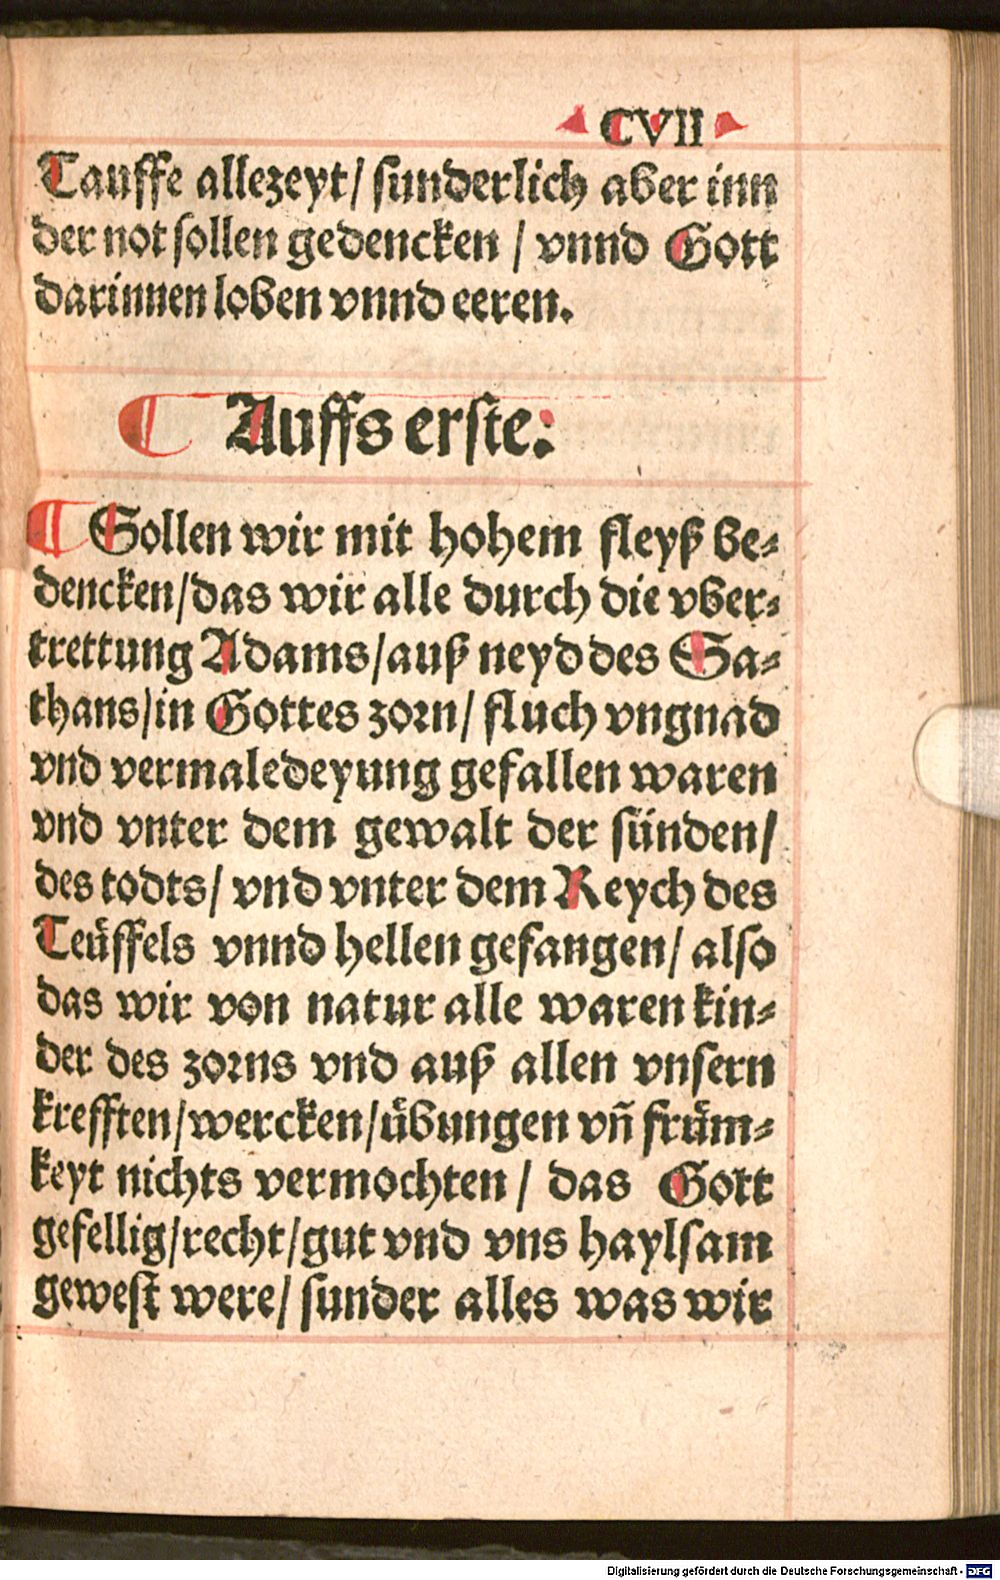 CVII
Tauffe allezeyt/ sunderlich aber inn
der not sollen gedencken / vnnd Gott
darinnen loben vnnd eeren.
¶ Auffs erste:
¶ Sollen wir mit hohem fleyß be⸗
dencken/das wir alle durch die vber⸗
trettung Adams/auß neyd des Sa⸗
thans/in Gottes zorn/ fluch vngnad
vnd vermaledeyung gefallen waren
vnd vnter dem gewalt der sünden/
des todts/ vnd vnter dem Reych des
Teüffels vnnd hellen gefangen/ also
das wir von natur alle waren kin⸗
der des zorns vnd auß allen vnsern
krefften/wercken/übungen vñ früm⸗
keyt nichts vermochten / das Gott
gefellig/recht/gut vnd vns haylsam
gewest were/ sunder alles was wir
Digitalisierung gefördert durch die Deutsche Forschungsgemeinschaft - DFG